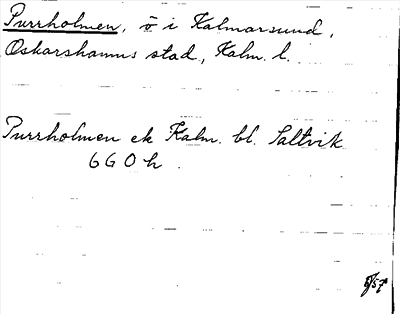 Purrholmen, ö i Kalmarsund,
Oskarshamns stad, Kalm. l.
Purrholmen ek Kalm. bl. Saltvik
6 G O h